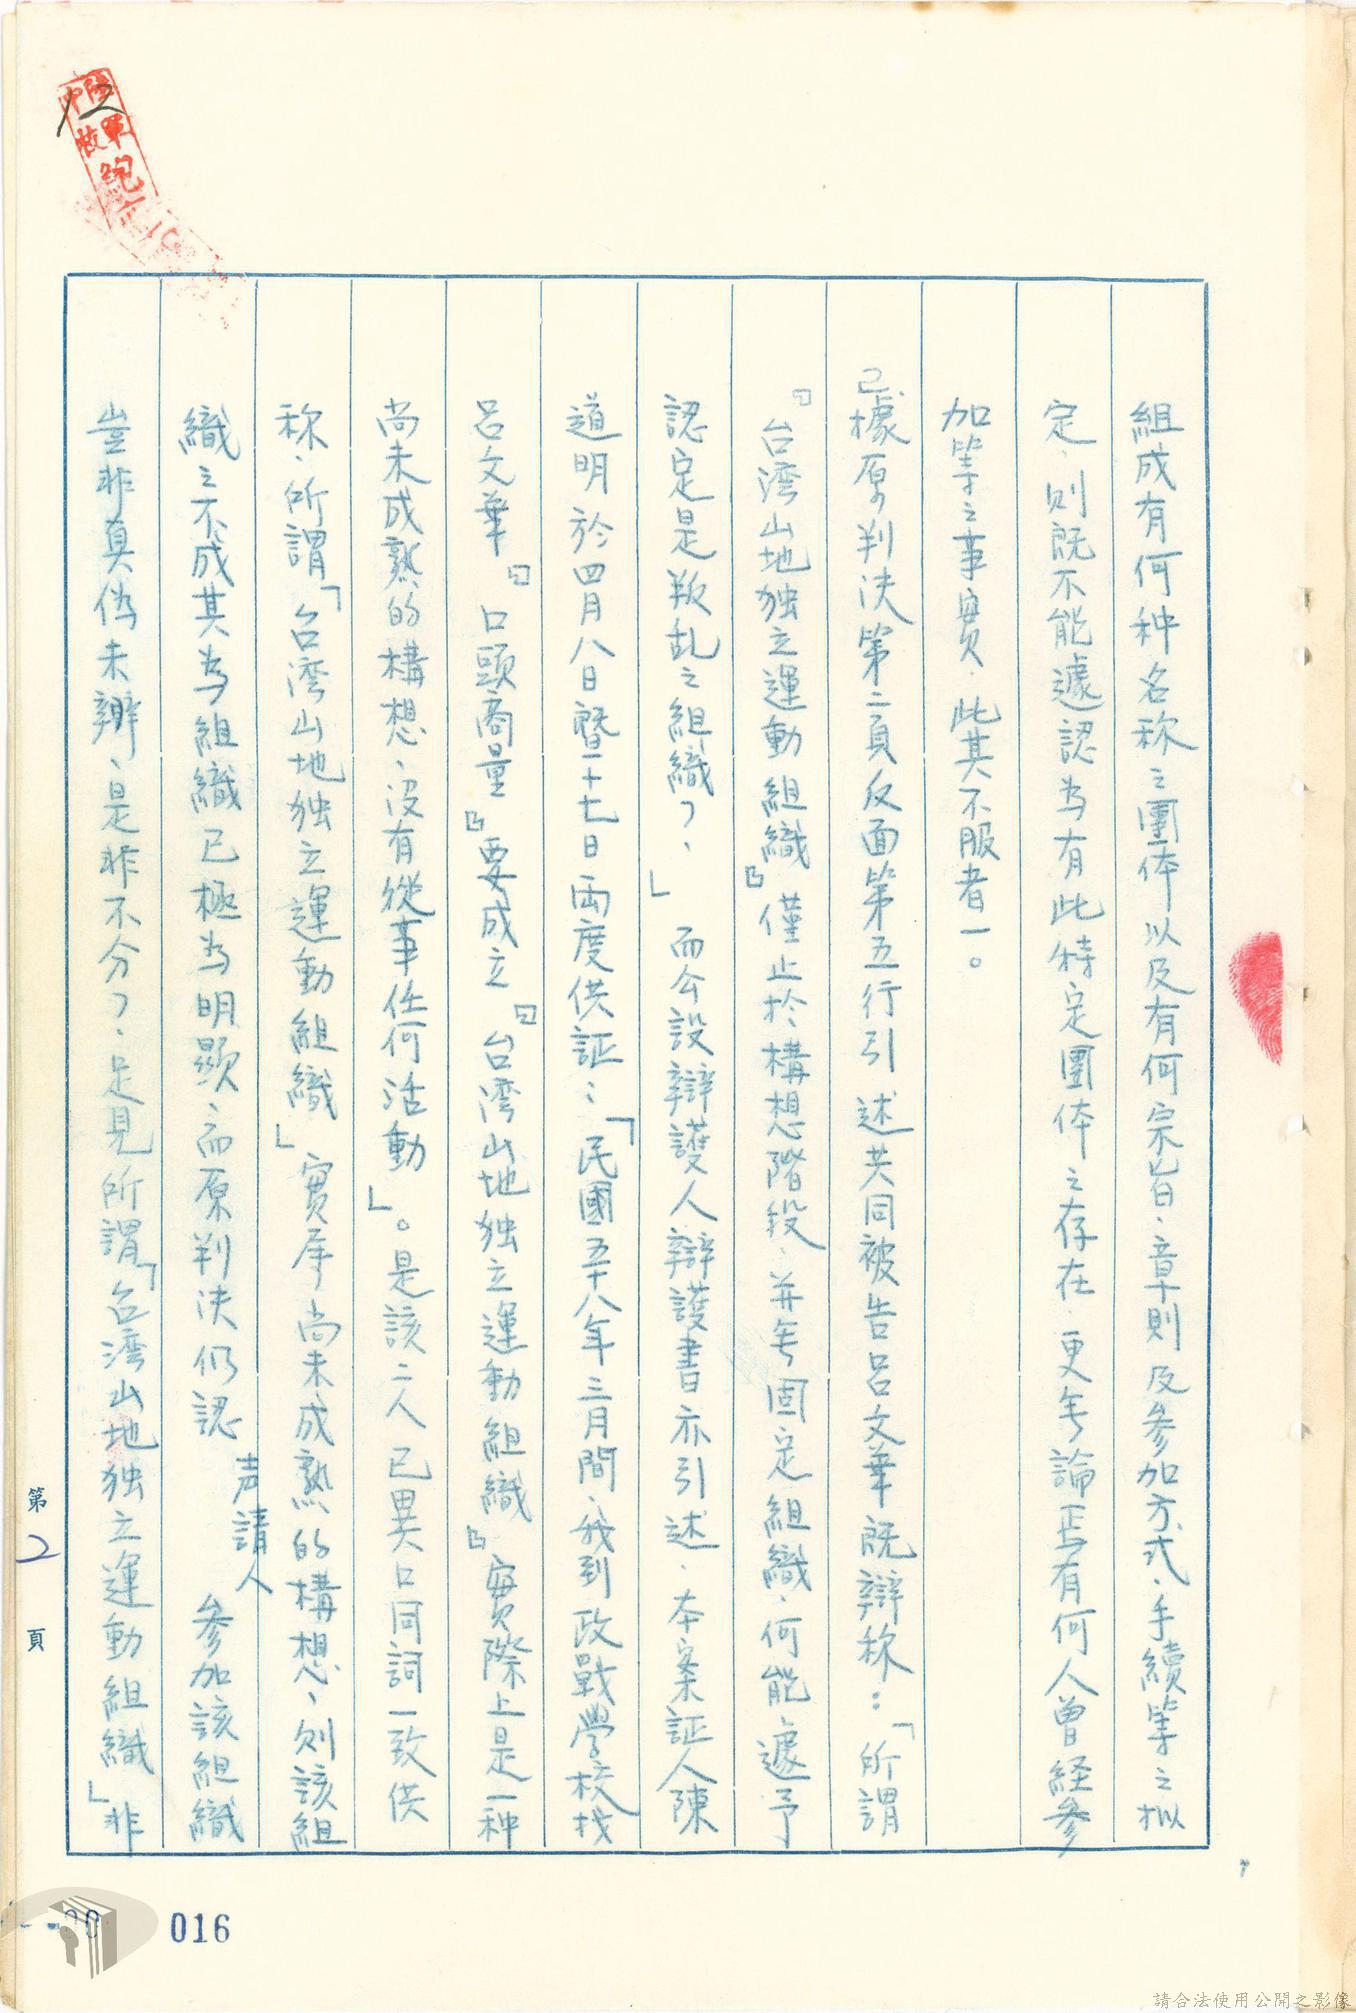 組成有何种名称之團体以及有何宗旨、章則及参加方式、手續等之拟
定、則既不能遽認為有此特定團体之存在、更无論焉有何人曾経参
加等之事實、此其不服者一。
㈡據原判決第二頁反面第五行引述共同被告呂文華既辯称：「所謂
『台湾山地独立運動組織』僅止於構想階段、并无固定組織、何能遽予
認定是叛乱之組織？」而公設辯護人辯護書亦引述、本案証人陳
道明於四月八日暨十七日両度供証：「民國五十八年三月間、我到政戰學校找
呂文華『口頭商量』要成立『台湾山地独立運動組織』實際上是一种
尚未成熟的構想、没有從事任何活動」。是該二人已異口同詞一致供
称、所謂「台湾山地独立運動組織」實屬尚未成熟的構想、則該組
織之不成其為組織已極為明顯、而原判決仍認声請人参加該組織
豈非真偽未辯、是非不分？、足見所謂「台湾山地独立運動組織」非
第2頁
12
016
請合法使用公開之影像